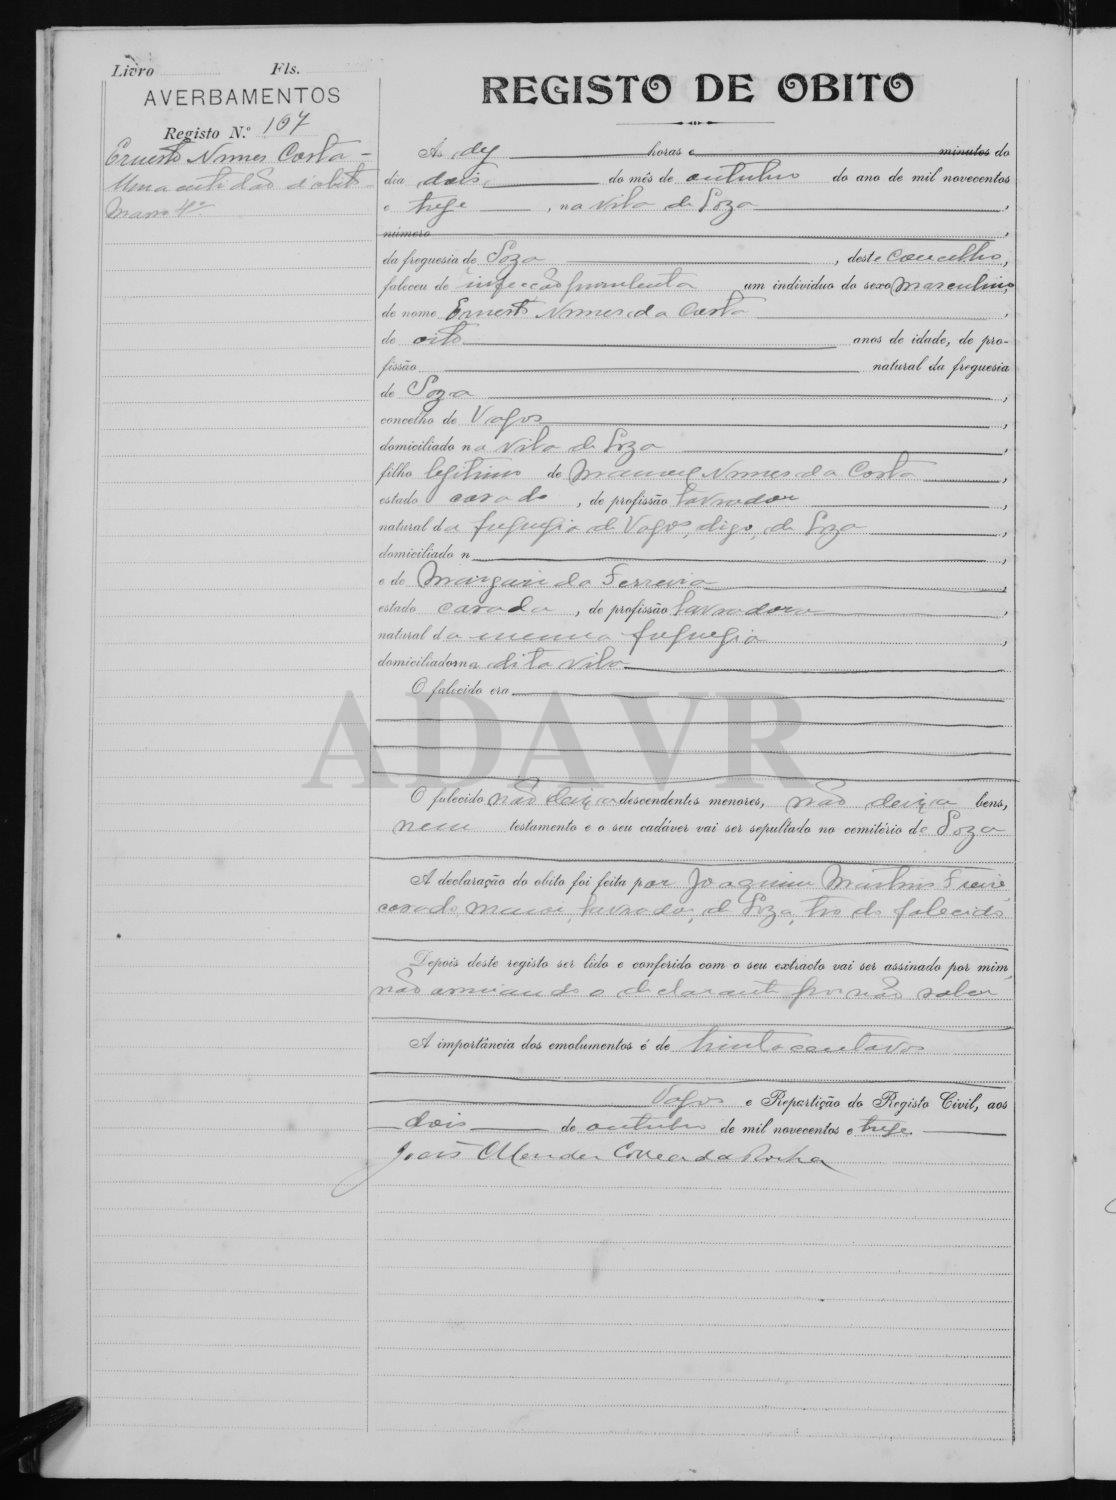 Livro Fls.
AVERBAMENTOS
Registo N.º 167
Ernesto Nunes Costa -
Uma certidão d'obito
Maço 4º
REGISTO DE OBITO
Ás dez horas e minutos do
dia dois do mês de outubro do ano de mil novecentos
e treze, na vila de Soza,
número,
da freguesia de Soza, deste concelho,
faleceu de infecção purulenta um individuo do sexo masculino,
de nome Ernesto Nunes da Costa,
de oito anos de idade, de pro-
fissão natural da freguesia
de Soza,
concelho de Vagos,
domiciliado na vila de Soza,
filho legitimo de Manuel Nunes da Costa,
estado casado, de profissão lavrador,
natural da freguezia de Vagos, digo, de Soza,
domiciliado n,
e de Margarida Ferreira,
estado casada, de profissão lavradora,
natural da mesma freguezia,
domiciliados na dita vila
O falecido era
ADAVR
O falecido não deixa descendentes menores, não deixa bens,
nem testamento e o seu cadáver vai ser sepultado no cemitério de Soza
A declaração do obito foi feita por Joaquim Martins Freire,
casado, maior, lavrador, de Soza, tio do falecido
Depois deste registo ser lido e conferido com o seu extracto vai ser assinado por mim,
não assinando o declarante por não saber
A importância dos emolumentos é de trinta centavos
Vagos e Repartição do Registo Civil, aos
dois de outubro de mil novecentos e treze.
João Mendes Correia da Rocha